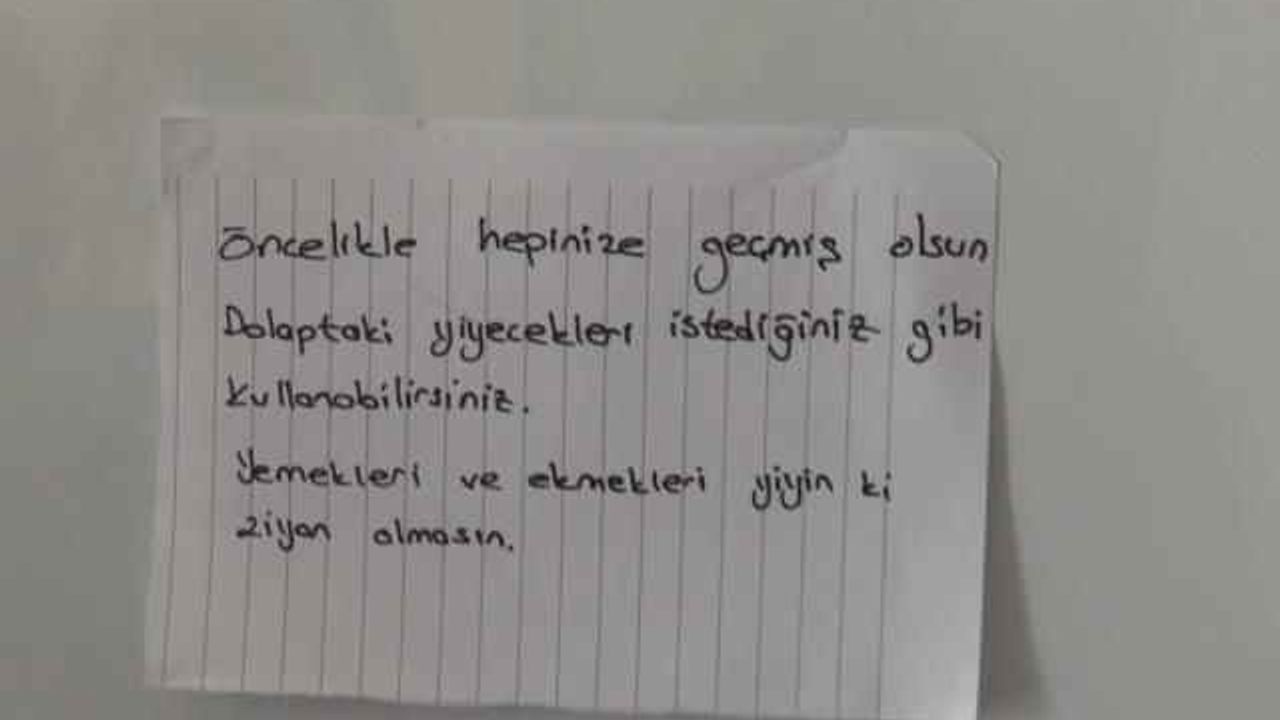 Öncelikle hepinize geçmiş olsun
Dolaptaki yiyecekleri istediğiniz gibi
kullanabilirsiniz.
Yemekleri ve ekmekleri yiyin ki
ziyan olmasın.